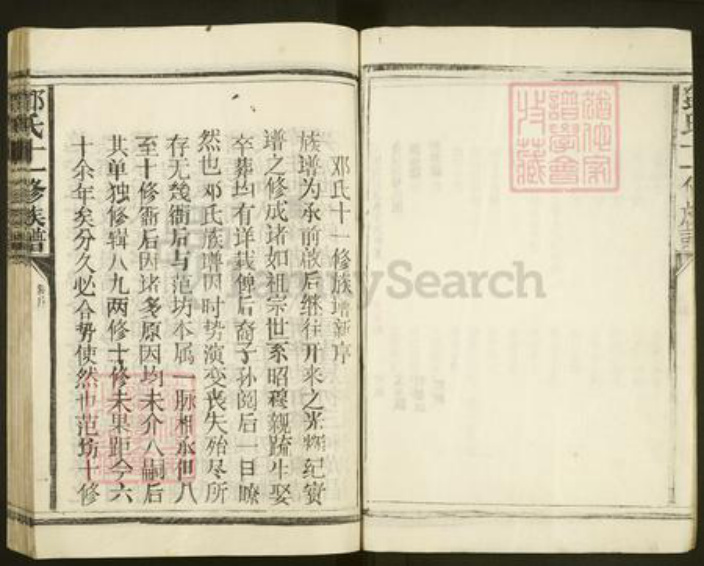 邓氏十一修族谱新序
族谱为承前啟后继往开来之光辉纪实
谱之修成诸如祖宗世系昭穆親疏生娶
卒葬均有详载俾后裔子孙阅后一目瞭
然也邓氏族谱因时势演变丧失殆尽所
存无几衝后与范坊本属一脉相承但八
至十修衝后因诸多原因均未介入嗣后
其单独修辑八九两修十修未果距今六
十余年矣分久必合势使然也范坊十修
邓氏十一修族谱
FamilySearch
譜學會
收藏